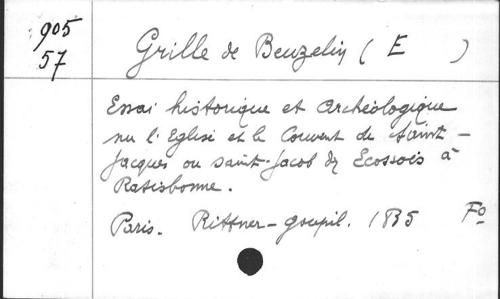 905
57
Grille de Beuzelin ( E )
Essai historique et archéologique
sur l'Eglise et le Couvent de saint-
Jacques ou saint-Jacob des Ecossois à
Ratisbonne.
Paris. Rittner-Goupil. 1835 Fo